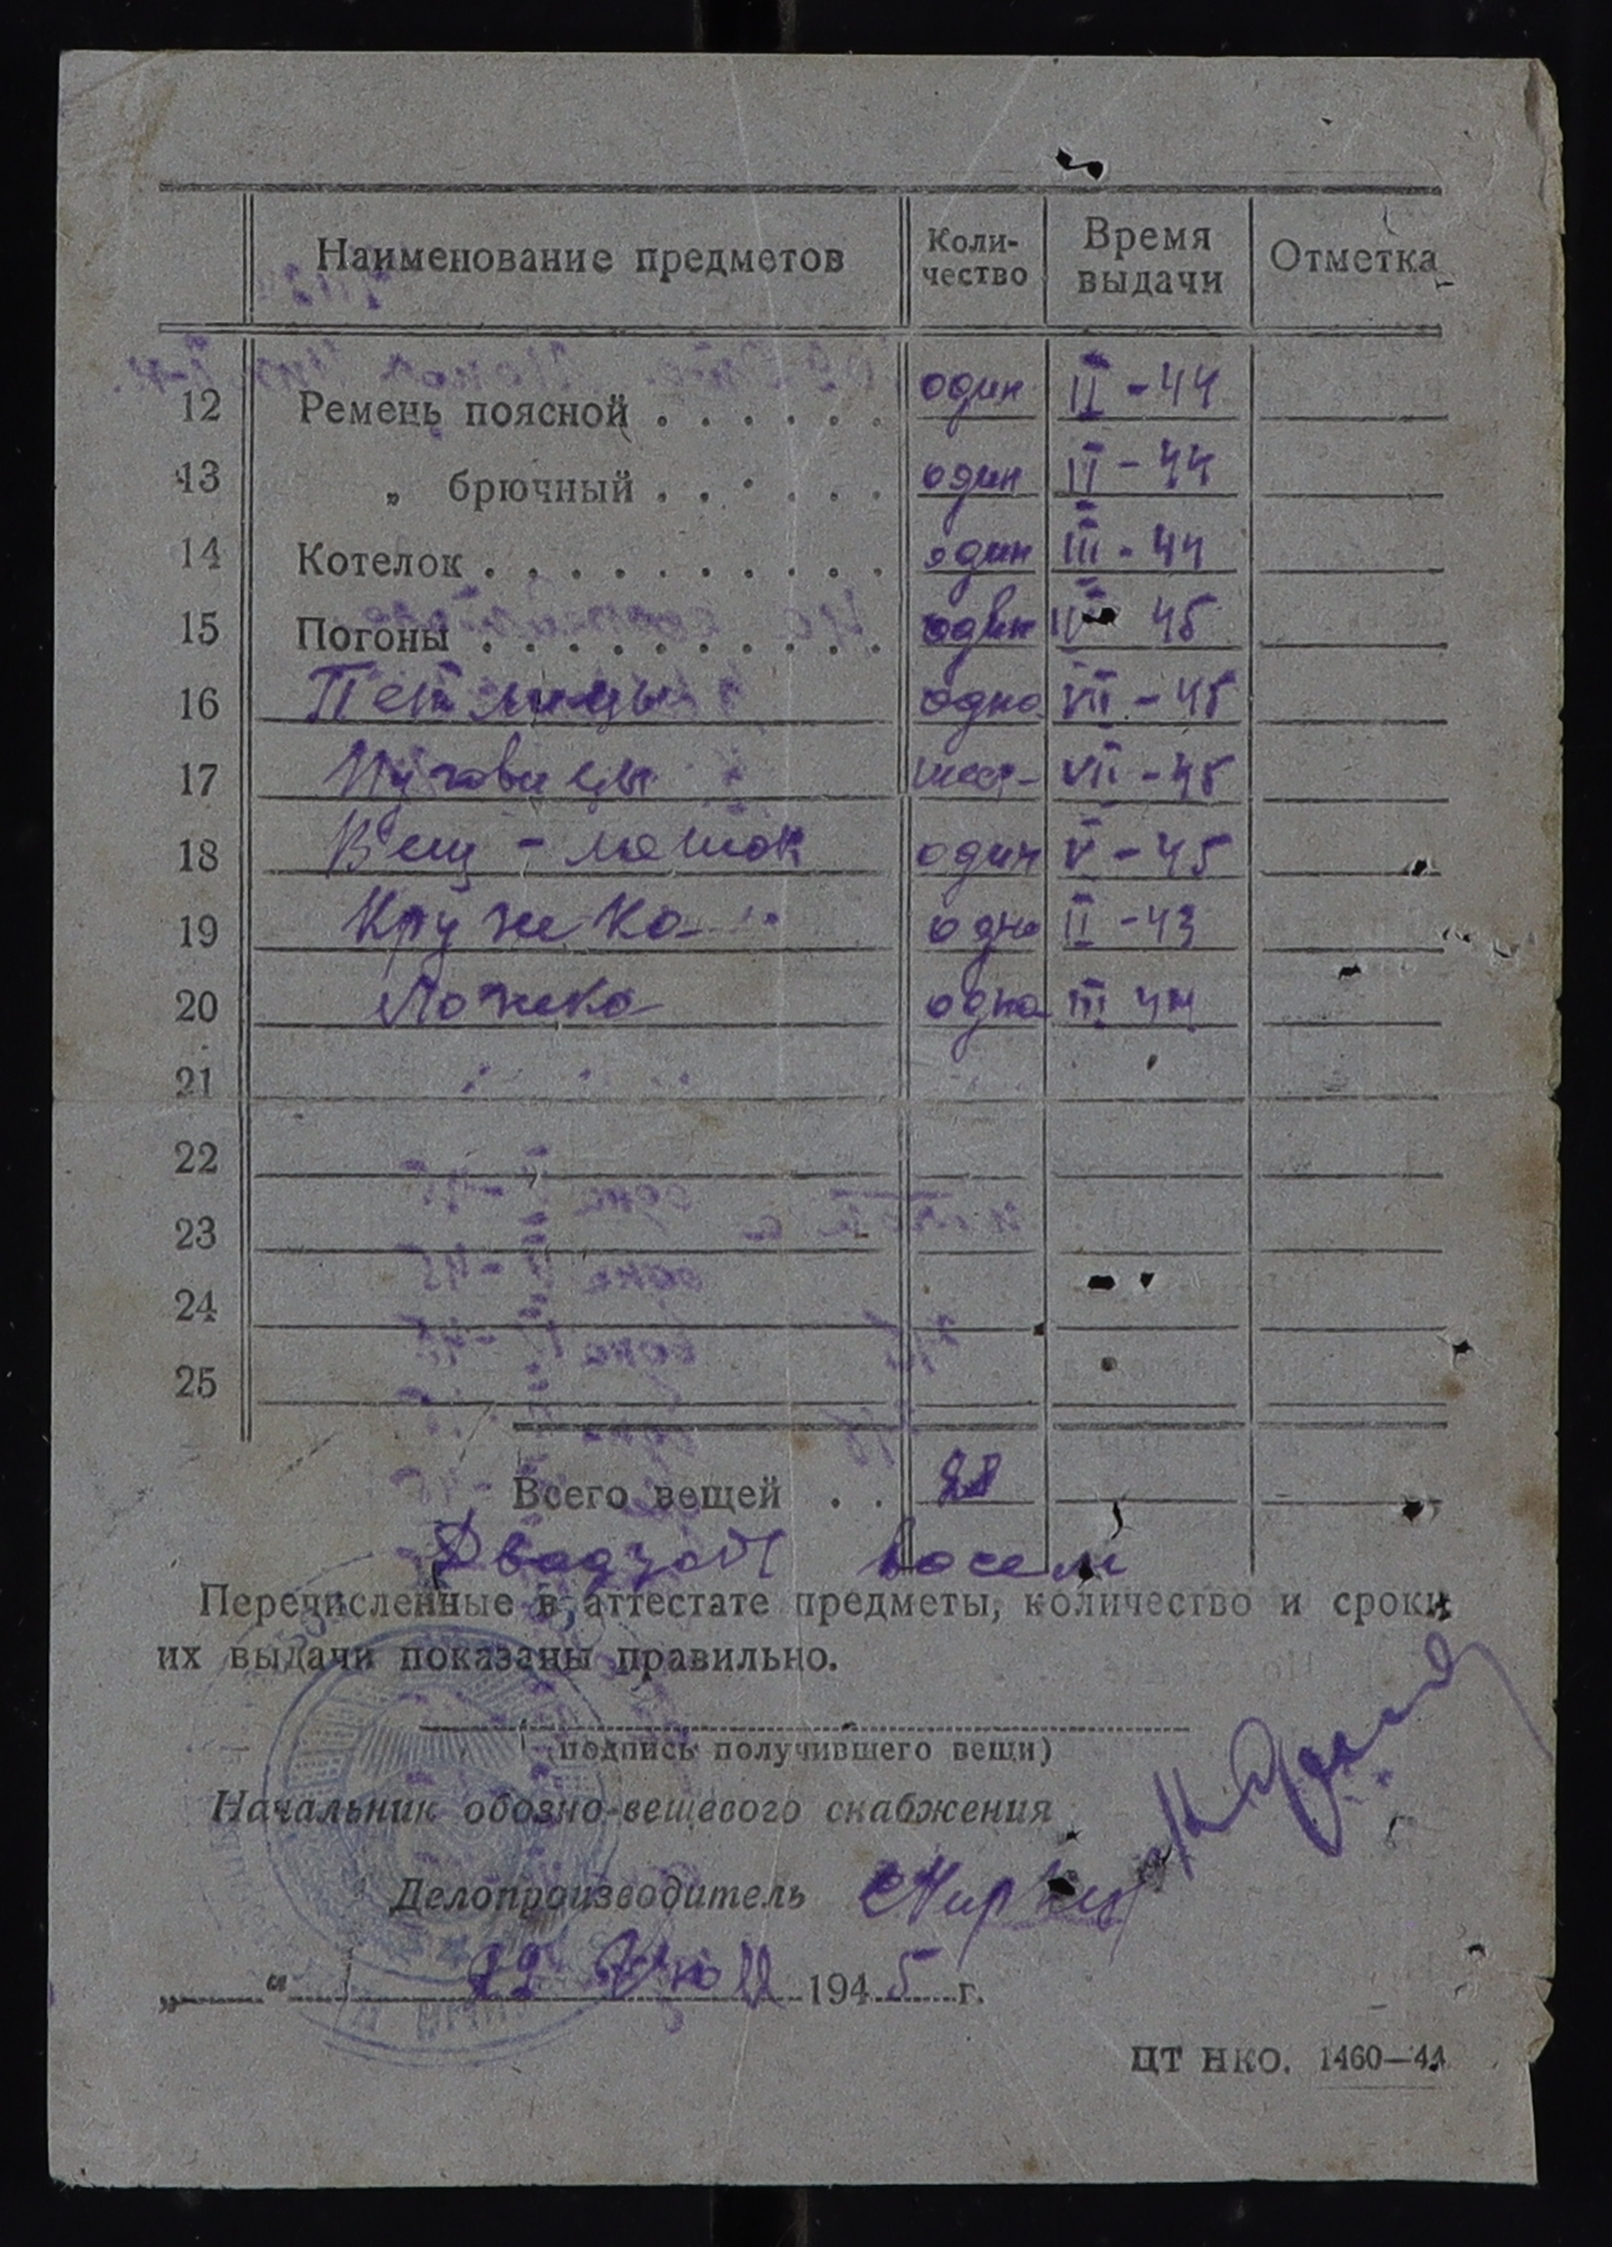 Наименование предметов Коли-чество Время выдачи Отметка
12 Ремень поясной . . . . . . один II - 44
13 „ брючный . . . . . . один II - 44
14 Котелок . . . . . . . . . . . один III - 44
15 Погоны . . . . . . . . . . . один IV 45
16 Петлицы одна VII - 45
17 Пуговицы шест- VII - 45
18 Вещ - мешок один V - 45
19 Кружка одна II - 43
20 Ложка одна III 44
21
22
23
24
25
Всего вещей . . 28
Двадзать восем
Перечисленные в аттестате предметы, количество и сроки
их выдачи показаны правильно.
(подпись получившего вещи)
Начальник обозно-вещевого снабжения
Делопроизводитель
„ “ 22 Июля 1945 г.
ЦТ НКО. 1460—44